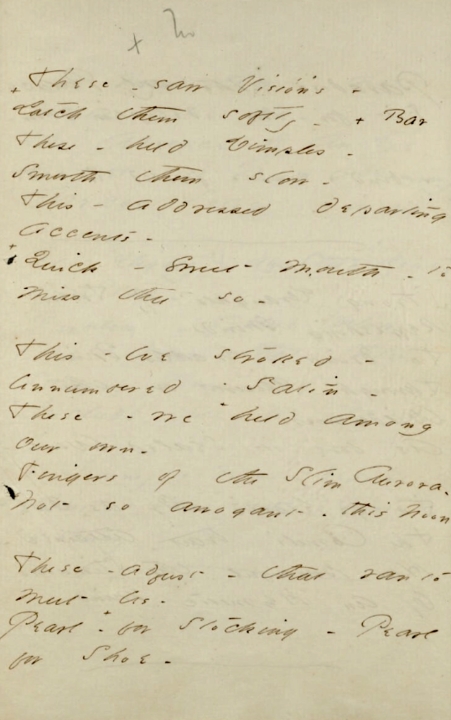 x
+ These - saw Visions -
Latch them softly - + Bar
These - held Dimples -
Smooth them slow -
This - addressed departing
accents -
+ Quick - Sweet Mouth - to
miss thee so -
This - We stroked -
Unnumbered Satin -
These - we held among
our own -
Fingers of the Slim Aurora -
Not so arrogant - this Noon
These - adjust - that ran to
meet Us -
Pearl - for Stocking - Pearl
for Shoe -